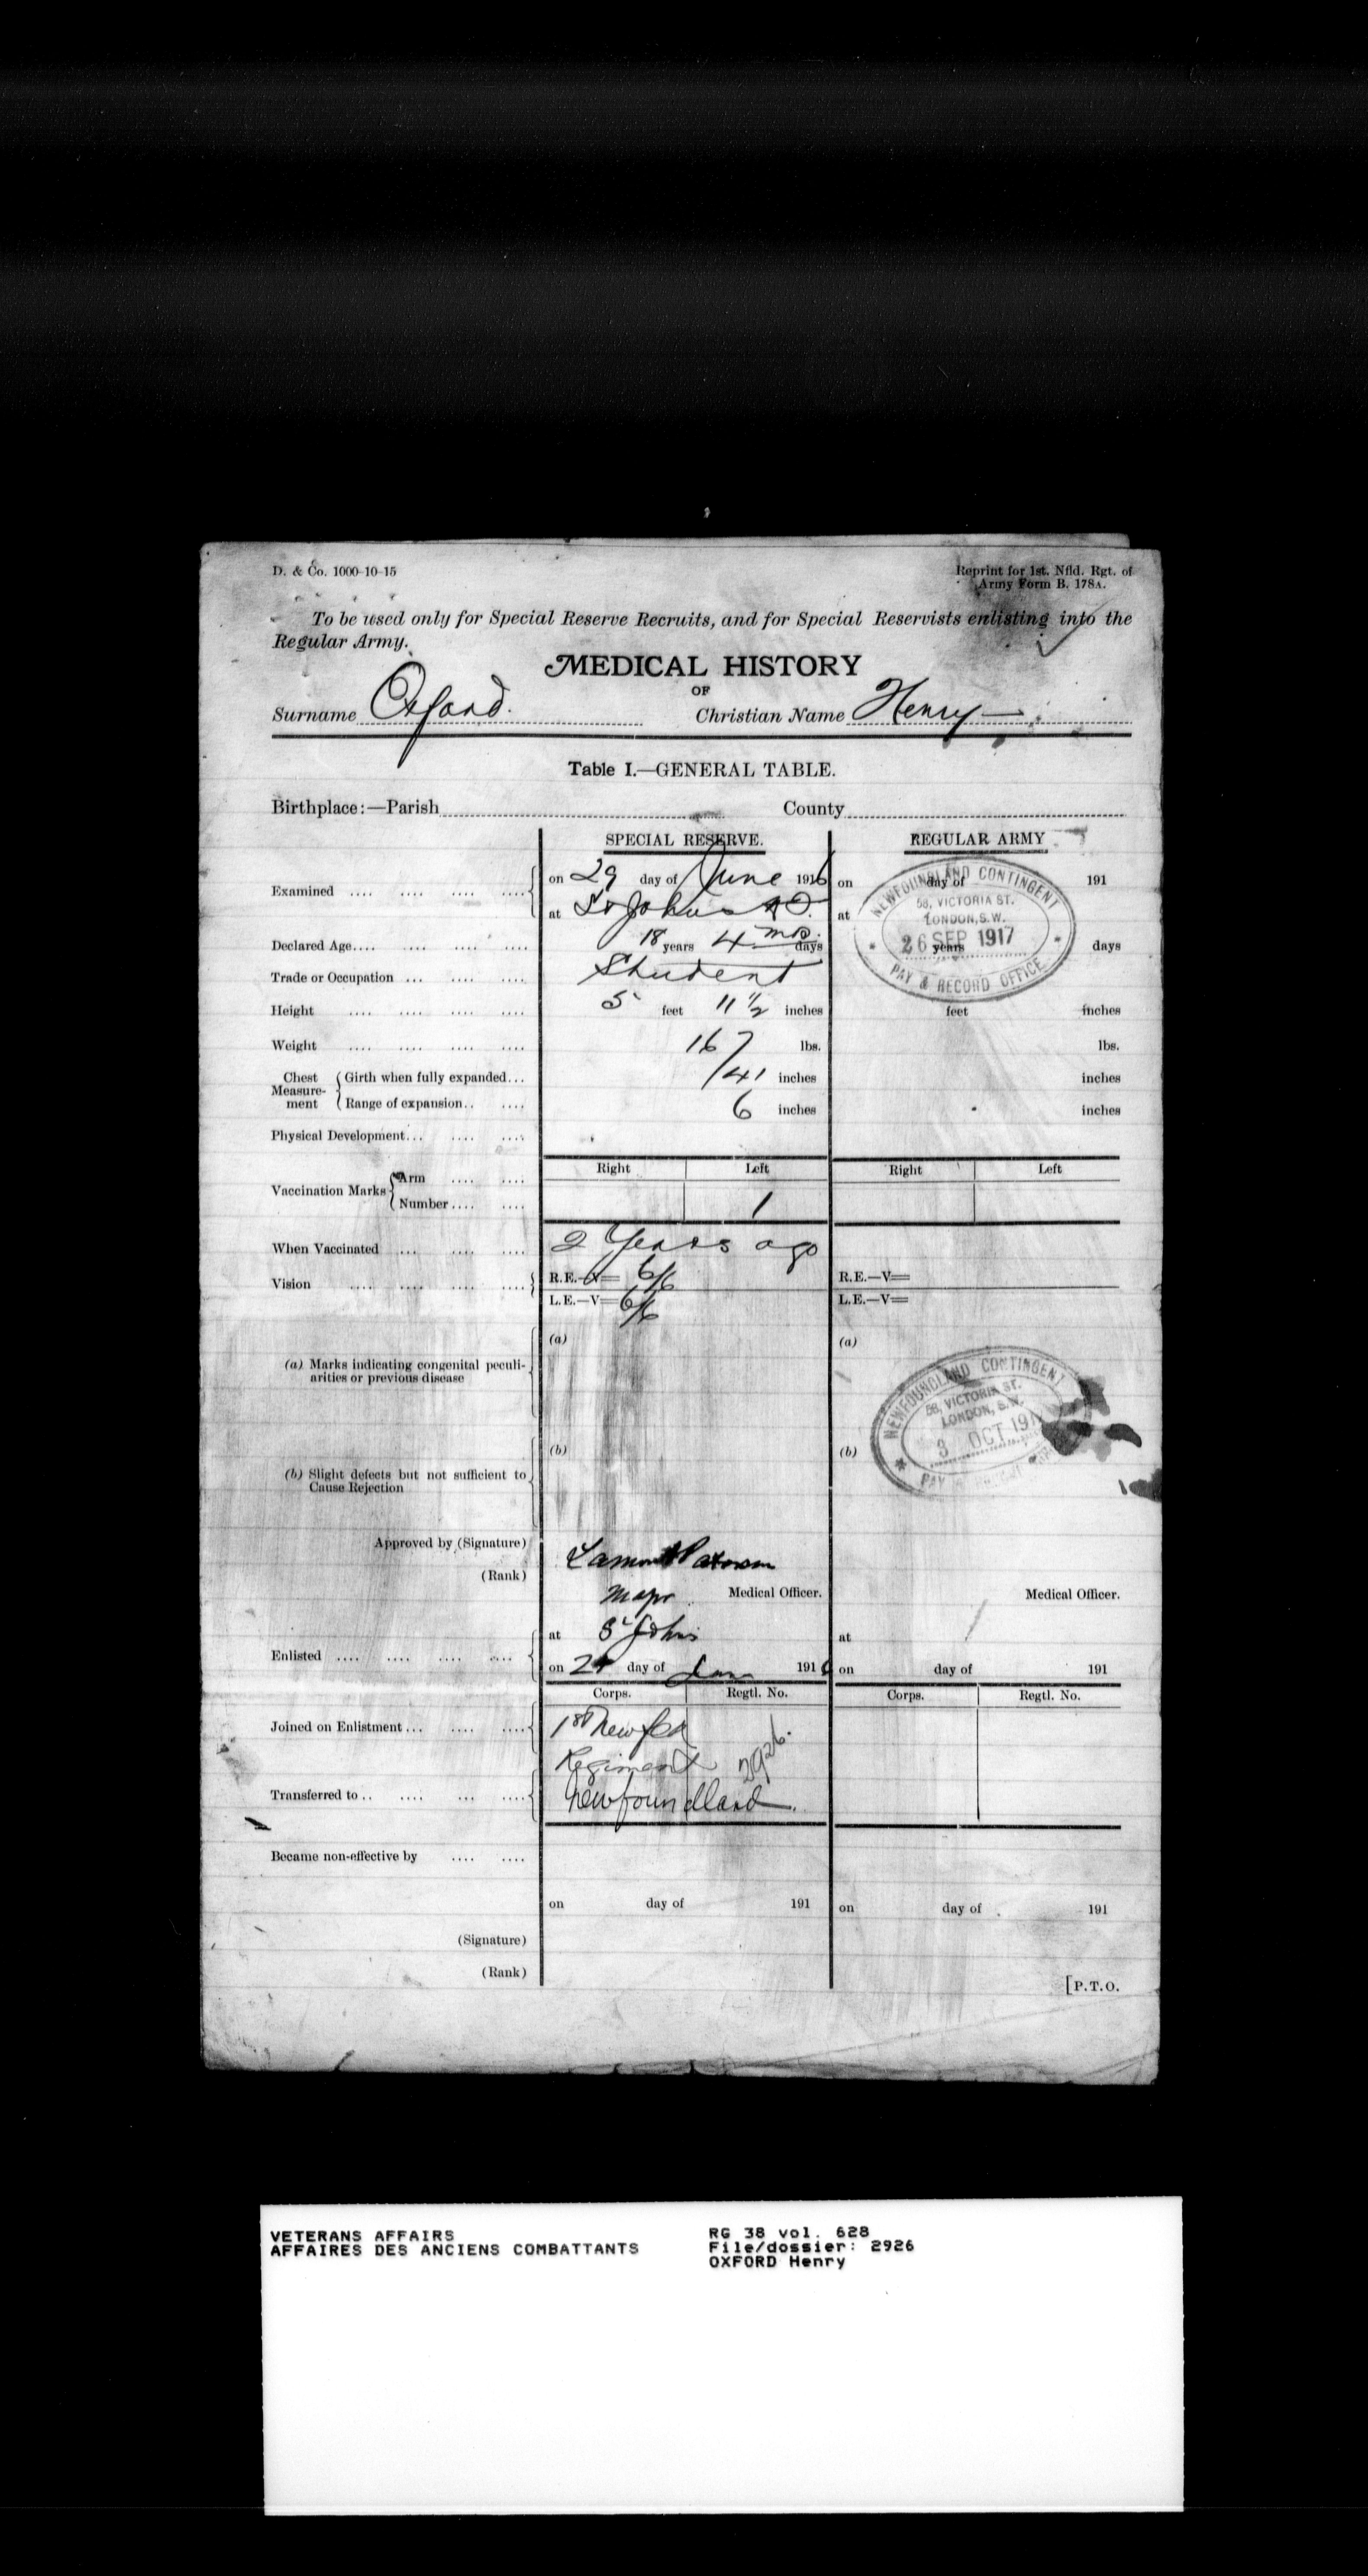 D. & Co. 1000-10-15
Reprint for 1st. Nfld. Rgt. of
Army Form B. 178A.
To be used only for Special Reserve Recruits, and for Special Reservists enlisting into the
Regular Army.
MEDICAL HISTORY
OF
Surname Oxford. Christian Name Henry
Table I.—GENERAL TABLE.
Birthplace:—Parish County
SPECIAL RESERVE. REGULAR ARMY
Examined .... on 29 day of June 1916 on day of 191
at St Johns at
Declared Age.... 18 years 4 mos. days years days
Trade or Occupation ... Student
Height .... 5 feet 11 1/2 inches feet inches
Weight .... 167 lbs. lbs.
Chest Measurement Girth when fully expanded... 41 inches inches
Range of expansion.. 6 inches inches
Physical Development...
Right Left Right Left
Vaccination Marks Arm ....
Number .... 1
When Vaccinated ... 2 Years ago
Vision .... R.E.—V= 6/6 R.E.—V=
L.E.—V= 6/6 L.E.—V=
(a) (a)
(a) Marks indicating congenital peculi-
arities or previous disease
(b) (b)
(b) Slight defects but not sufficient to
Cause Rejection
NEWFOUNDLAND CONTINGENT
58, VICTORIA ST.
LONDON, S.W.
26 SEP 1917
PAY & RECORD OFFICE
NEWFOUNDLAND CONTINGENT
58, VICTORIA ST.
LONDON, S.W.
3 OCT 191
PAY
Approved by (Signature) Lamont Paterson
(Rank) Major Medical Officer. Medical Officer.
at St Johns at
Enlisted .... on day of 191 on day of 191
Corps. Regtl. No. Corps. Regtl. No.
Joined on Enlistment ... 1st Newfld
Regiment 2926.
Transferred to .. Newfoundland.
Became non-effective by ....
on day of 191 on day of 191
(Signature)
(Rank)
[P.T.O.
VETERANS AFFAIRS
AFFAIRES DES ANCIENS COMBATTANTS
RG 38 vol. 628
File/dossier: 2926
OXFORD Henry